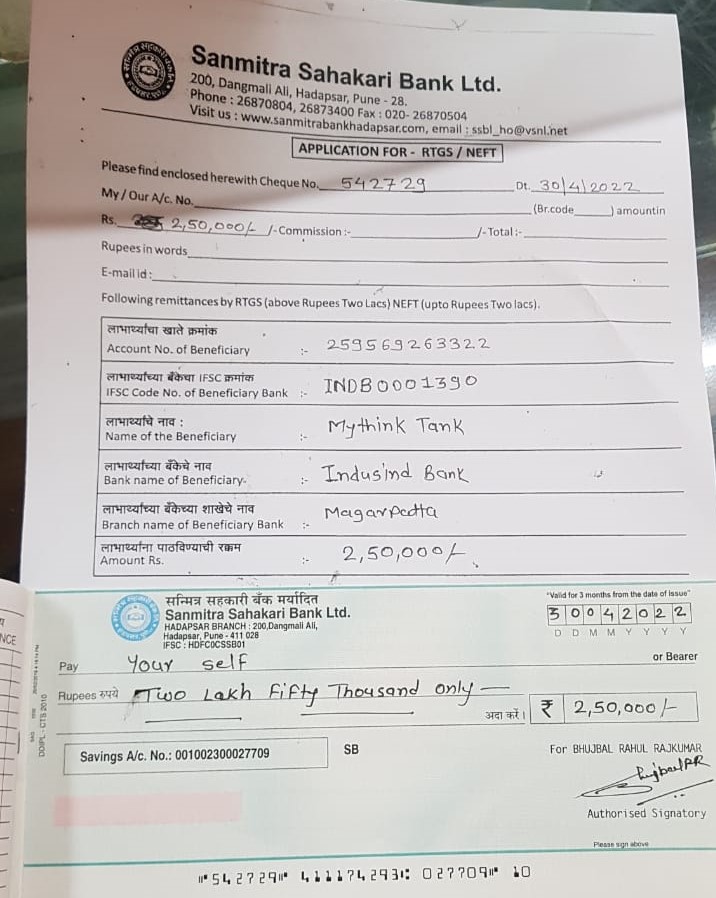 Sanmitra Sahakari Bank Ltd.
200, Dangmali Ali, Hadapsar, Pune - 28.
Phone : 26870804, 26873400 Fax : 020- 26870504
Visit us : www.sanmitrabankhadapsar.com, email : ssbl_ho@vsnl.net
APPLICATION FOR - RTGS / NEFT
Please find enclosed herewith Cheque No. 542729 Dt. 30/4/2022
My / Our A/c. No. (Br.code ) amountin
Rs. 2,50,000/- /-Commission :- /-Total :-
Rupees in words
E-mail id :
Following remittances by RTGS (above Rupees Two Lacs) NEFT (upto Rupees Two lacs).
लाभार्थ्याचा खाते क्रमांक
Account No. of Beneficiary :- 259569263322
लाभार्थ्याच्या बँकेचा IFSC क्रमांक
IFSC Code No. of Beneficiary Bank :- INDB0001390
लाभार्थ्याचे नाव :
Name of the Beneficiary :- Mythink Tank
लाभार्थ्याच्या बँकेचे नाव
Bank name of Beneficiary. :- Indusind Bank
लाभार्थ्याच्या बँकेच्या शाखेचे नाव
Branch name of Beneficiary Bank :- Magarpatta
लाभार्थ्यांना पाठविण्याची रक्कम
Amount Rs. :- 2,50,000/-
सन्मित्र सहकारी बँक मर्यादित
Sanmitra Sahakari Bank Ltd.
HADAPSAR BRANCH : 200,Dangmali Ali,
Hadapsar, Pune - 411 028
IFSC : HDFC0CSSB01
"Valid for 3 months from the date of issue"
30042022
D D M M Y Y Y Y
Pay Your self or Bearer
Rupees रुपये Two Lakh Fifty Thousand only
अदा करें। ₹ 2,50,000/-
Savings A/c. No.: 001002300027709 SB
For BHUJBAL RAHUL RAJKUMAR
Authorised Signatory
Please sign above
DDIPL - CTS 2010
NCE
⑈542729⑈ 411174293⑆ 027709⑈ 10